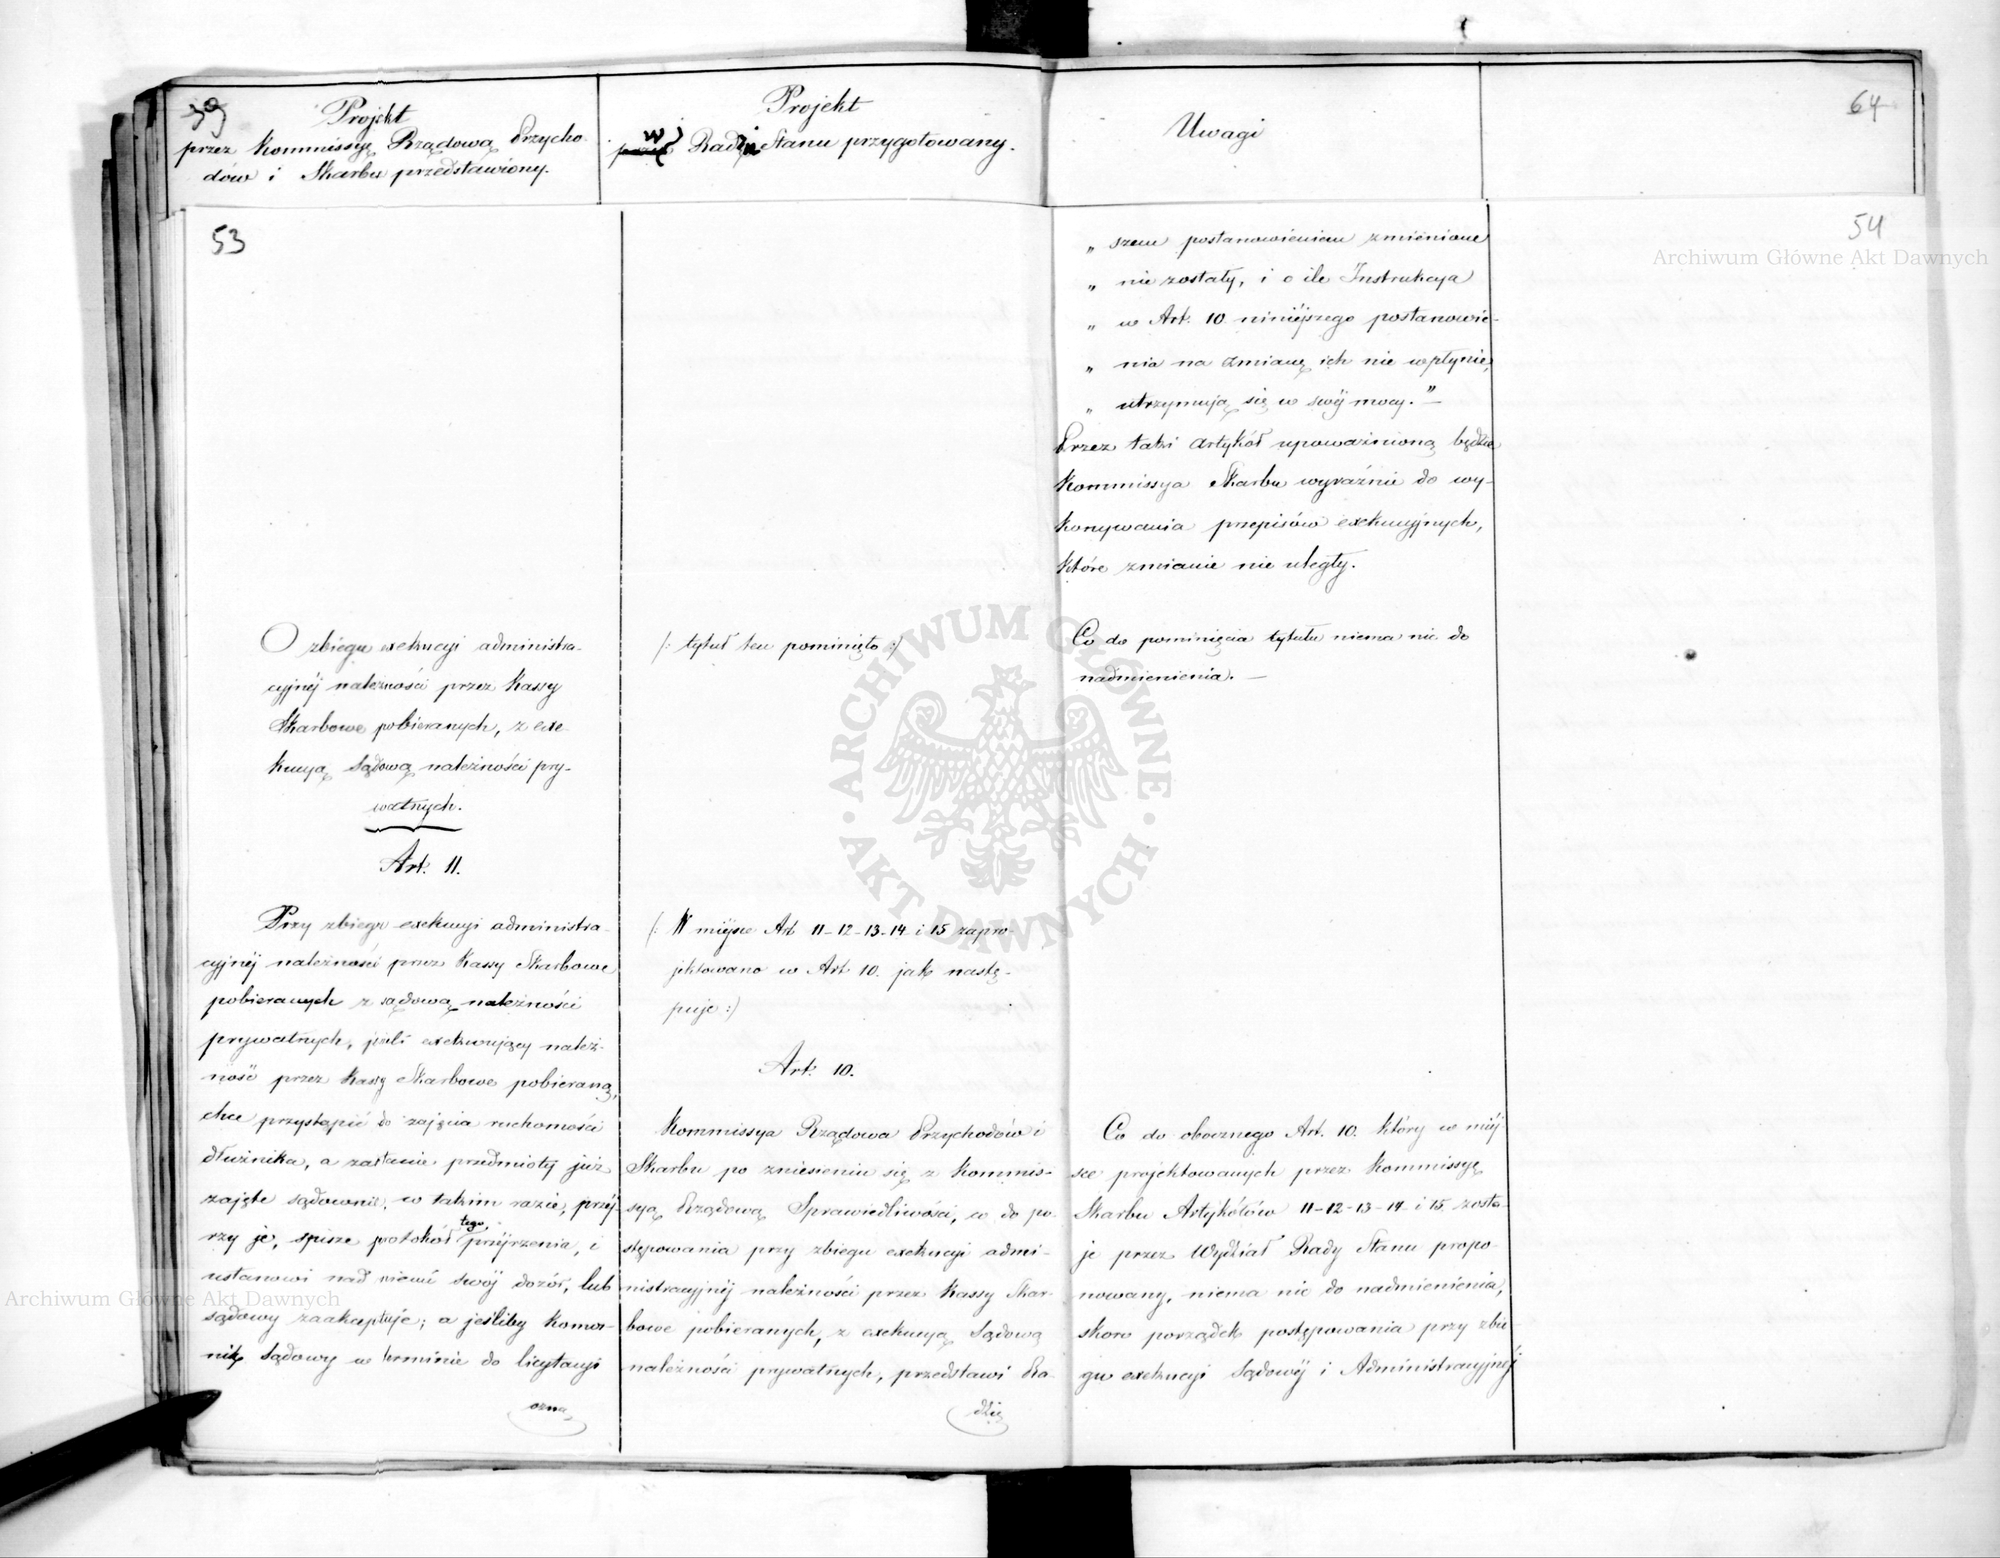 59
Projekt
przez Kommissyę Rządową Przycho-
dów i Skarbu przedstawiony.
Projekt
w Radzie Stanu przygotowany.
Uwagi
64
53
O zbiegu exekucyi administra-
cyjnéj należności przez Kassy
Skarbowe pobieranych, z exe-
kucyą sądową należności pry-
watnych.
Art. 11.
Przy zbiegu exekucyi administra-
cyjnéj należności przez Kassy Skarbowe
pobieranych z sądową należności
prywatnych, jeśli exekwujący należ-
ność przez Kassy Skarbowe pobieraną,
chce przystąpić do zajęcia ruchomości
dłużnika, a zastanie przedmioty już
zajęte sądownie, w takim razie, przéj-
rzy je, spisze protokół tego przéjrzenia, i
ustanowi nad niemi swój dozór, lub
sądowy zaakceptuje; a jeśliby Komor-
nik Sądowy w terminie do licytacyi
ozna
(: tytuł ten pominięto :)
(: W miéjsce Art 11-12-13-14 i 15 zapro-
jektowano w Art 10. jak nastę-
puje :)
Art. 10.
Kommissya Rządowa Przychodów i
Skarbu po zniesieniu się z Kommis-
syą Rządową Sprawiedliwości, co do po-
stępowania przy zbiegu exekucyi admi-
nistracyjnéj należności przez Kassy Skar-
bowe pobieranych, z exekucyą Sądową
należności prywatnych, przedstawi Ra-
dzie
54
„ szem postanowieniem zmienione
„ nie zostały, i o ile Instrukcya
„ w Art. 10 niniéjszego postanowie-
„ nia na zmianę ich nie wpłynie,
„ utrzymują się w swéj mocy." —
Przez taki Artykół upoważnioną będzie
Kommissya Skarbu wyraźnie do wy-
konywania przepisów exekucyjnych,
które zmianie nie uległy.
Co do pominięcia tytułu niema nic do
nadmienienia. —
Co do obocznego Art. 10. który w miéj-
sce projektowanych przez Kommissyę
Skarbu Artykółów 11-12-13-14 i 15 zosta-
je przez Wydział Rady Stanu propo-
nowany, niema nic do nadmienienia,
skoro porządek postępowania przy zbie-
gu exekucyi Sądowéj i Administracyjnéj
Archiwum Główne Akt Dawnych
Archiwum Główne Akt Dawnych
ARCHIWUM GŁÓWNE · AKT DAWNYCH ·